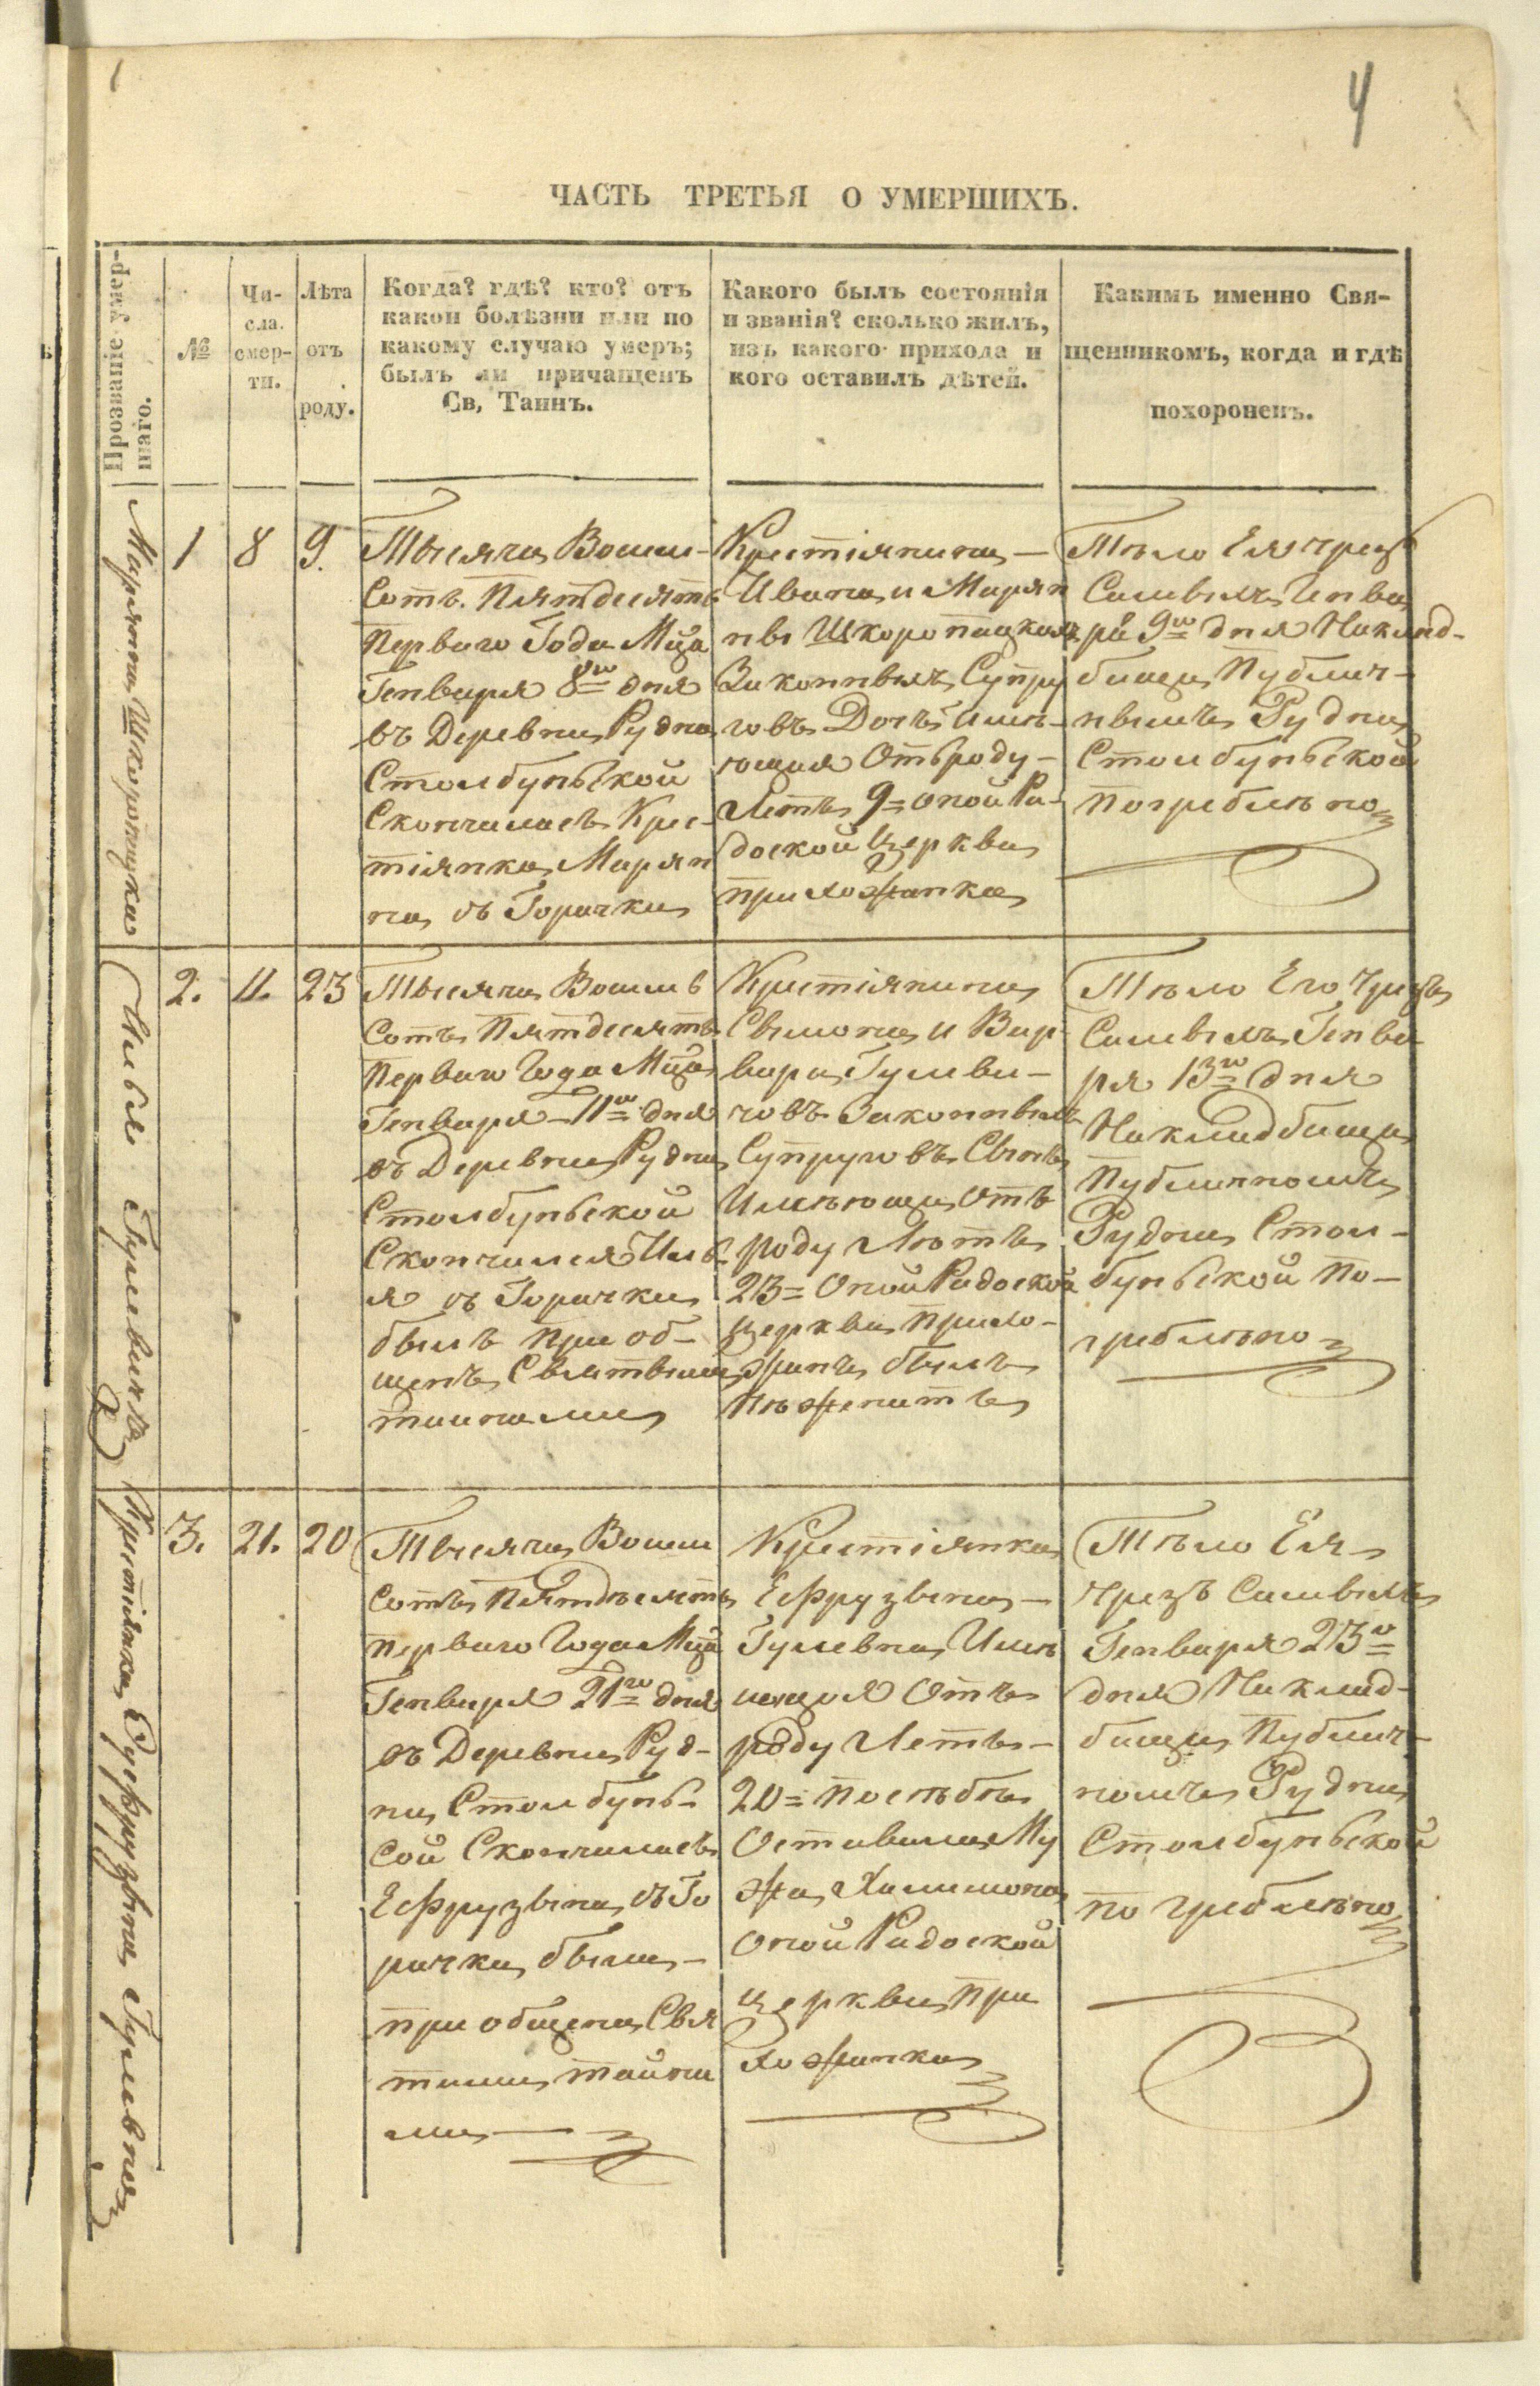 4
ЧАСТЬ ТРЕТЬЯ О УМЕРШИХЪ.
Прозваніе умер-
шаго.
№
Чи-
сла.
смер-
ти.
Лѣта
отъ
роду.
Когда? гдѣ? кто? отъ
какой болѣзни или по
какому случаю умеръ;
былъ ли причащенъ
Св, Таинъ.
Какого былъ состоянія
и званія? сколько жилъ,
изъ какого прихода и
кого оставилъ дѣтей.
Какимъ именно Свя-
щенникомъ, когда и гдѣ
похороненъ.
Марянна Шкоропацка
1
8
9.
Тысяча Восем-
Сотъ. Пятдесятъ
Перваго Года Мца
Генваря 8го дня
въ Деревни Рудна
Столбунской
Скончалась Крес-
тіянка Марян
на съ Горачки
Крестіянина
Ивана и Марян
ны Шкоропацкихъ
Законныхъ Супру
говъ Дочь имѣ-
ющая Отъ роду
Летъ 9 оной Ра-
доской Церкви
прихожанка
Тѣло Ея чрезъ
Самыхъ Генва
ря 9го дня Наклад-
бищи Публич-
нымъ Рудни
Столбунской
погребѣно
Илья Гулевичъ
2.
11.
23
Тысяча Восемь
Сотъ Пятдесятъ
Перваго Года Мца
Генваря 11го дня
въ Деревни Рудни
Столбунской
Скончился Иль
я съ Горачки
былъ приоб-
щенъ Святыми
таинами
Крестіянина
Сымона и Вар-
вары Гулеви-
човъ Законныхъ
Супруговъ Сынъ
Имѣющи отъ
роду Лѣтъ
23 Оной Радоской
Церкви прихо-
жанъ былъ
нѣженатъ
Тѣло Его чрезъ
Самыхъ Генва
ря 13го дня
Накладбищи
Публичномъ
Рудни Стол-
бунской по-
гребѣно
Крестіянка Еуфрузына Гулевна
3.
21.
20
Тысяча Восем
Сотъ Пятдѣсятъ
перваго Года Мца
Генваря 21го дня
въ Деревни Руд-
ни Столбунь-
сой Скончилась
Еуфрузына съ Го
рачки была
приобщена Свя
тими тайна
ми
Крестіянка
Еуфрузына
Гулевна Имѣ
ющая Отъ
роду Летъ
20
Оставила Му
жа Халимона
Оной Радоской
церкви при
хожанка
Тѣло Ея
чрезъ Самыхъ
Генваря 23го
дня Наклад-
бищи Публич-
номъ Рудни
Столбунской
погребѣно